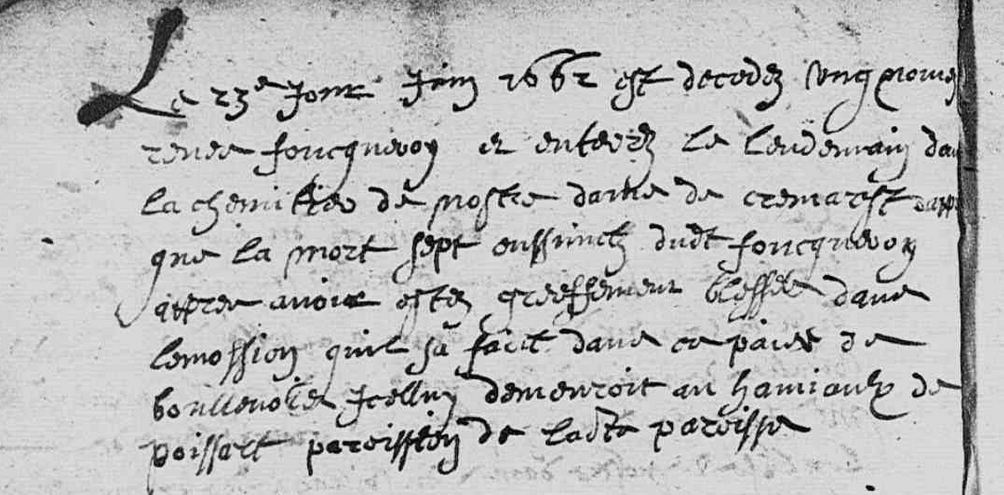 Le 23e Jour Juin 1662 est decedez ung nomez
renee foucquevoy et enterez le lendemain dan
la chemitier de nostre dame de cremarest dapr
que la mort sest enssuivit dudt foucquevoy
appres avoir estez grieffement blesse dans
lemossion quil sa faict dans ce pais de
boullenois Icelluy demeuroit au hamiaulx de
poissart paroissien de ladte paroisse